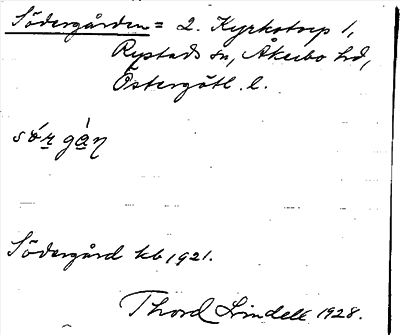 Södergården = 2. Kyrkotorp 1,
Rystads sn, Åkerbo hd,
Östergötl. l.
sór gàŋ
Södergård kb 1921.
Thord Lindell 1928.